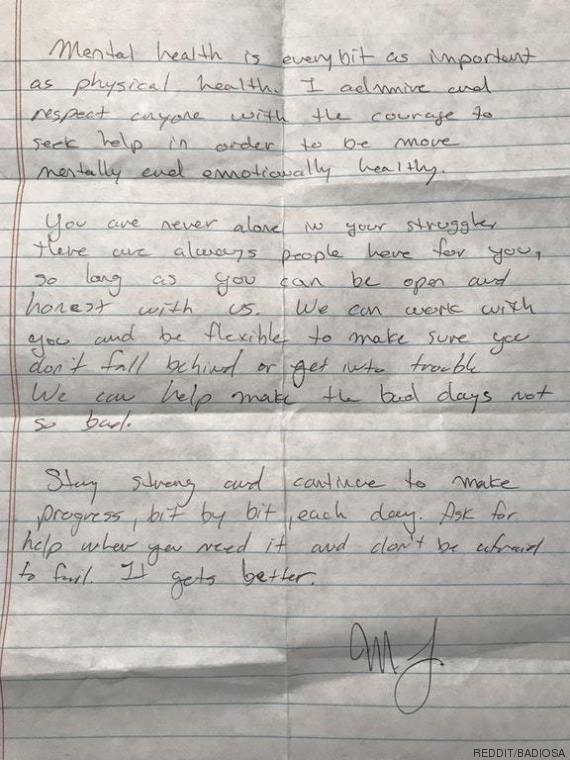 Mental health is every bit as important
as physical health. I admire and
respect anyone with the courage to
seek help in order to be more
mentally and emotionally healthy.
You are never alone in your struggle,
there are always people here for you,
so long as you can be open and
honest with us. We can work with
you and be flexible to make sure you
don't fall behind or get into trouble
We can help make the bad days not
so bad.
Stay strong and continue to make
progress, bit by bit, each day. Ask for
help when you need it and don't be afraid
to fail. It gets better.
REDDIT/BADIOSA